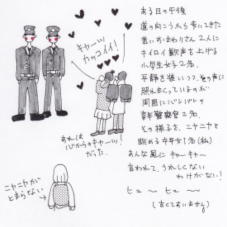 ある日の午後
道の向こうから歩いてきた
若いおまわりさん2人に
キイロイ歓声を上げる
小学生女子2名。
平静を装いつつ、その声に
照れまくっているのが
周囲にバレバレの
青年警察官2名。
その様子を、ニヤニヤと
眺める中年女1名(私)
あんな風にキャーキャー
言われて、うれしくない
わけがない!
ヒューヒュー
(古くてすいません)
キャーッ
カッコイイ!
あれは
心からのキャーッ!
だった。
ニヤニヤが
とまらない